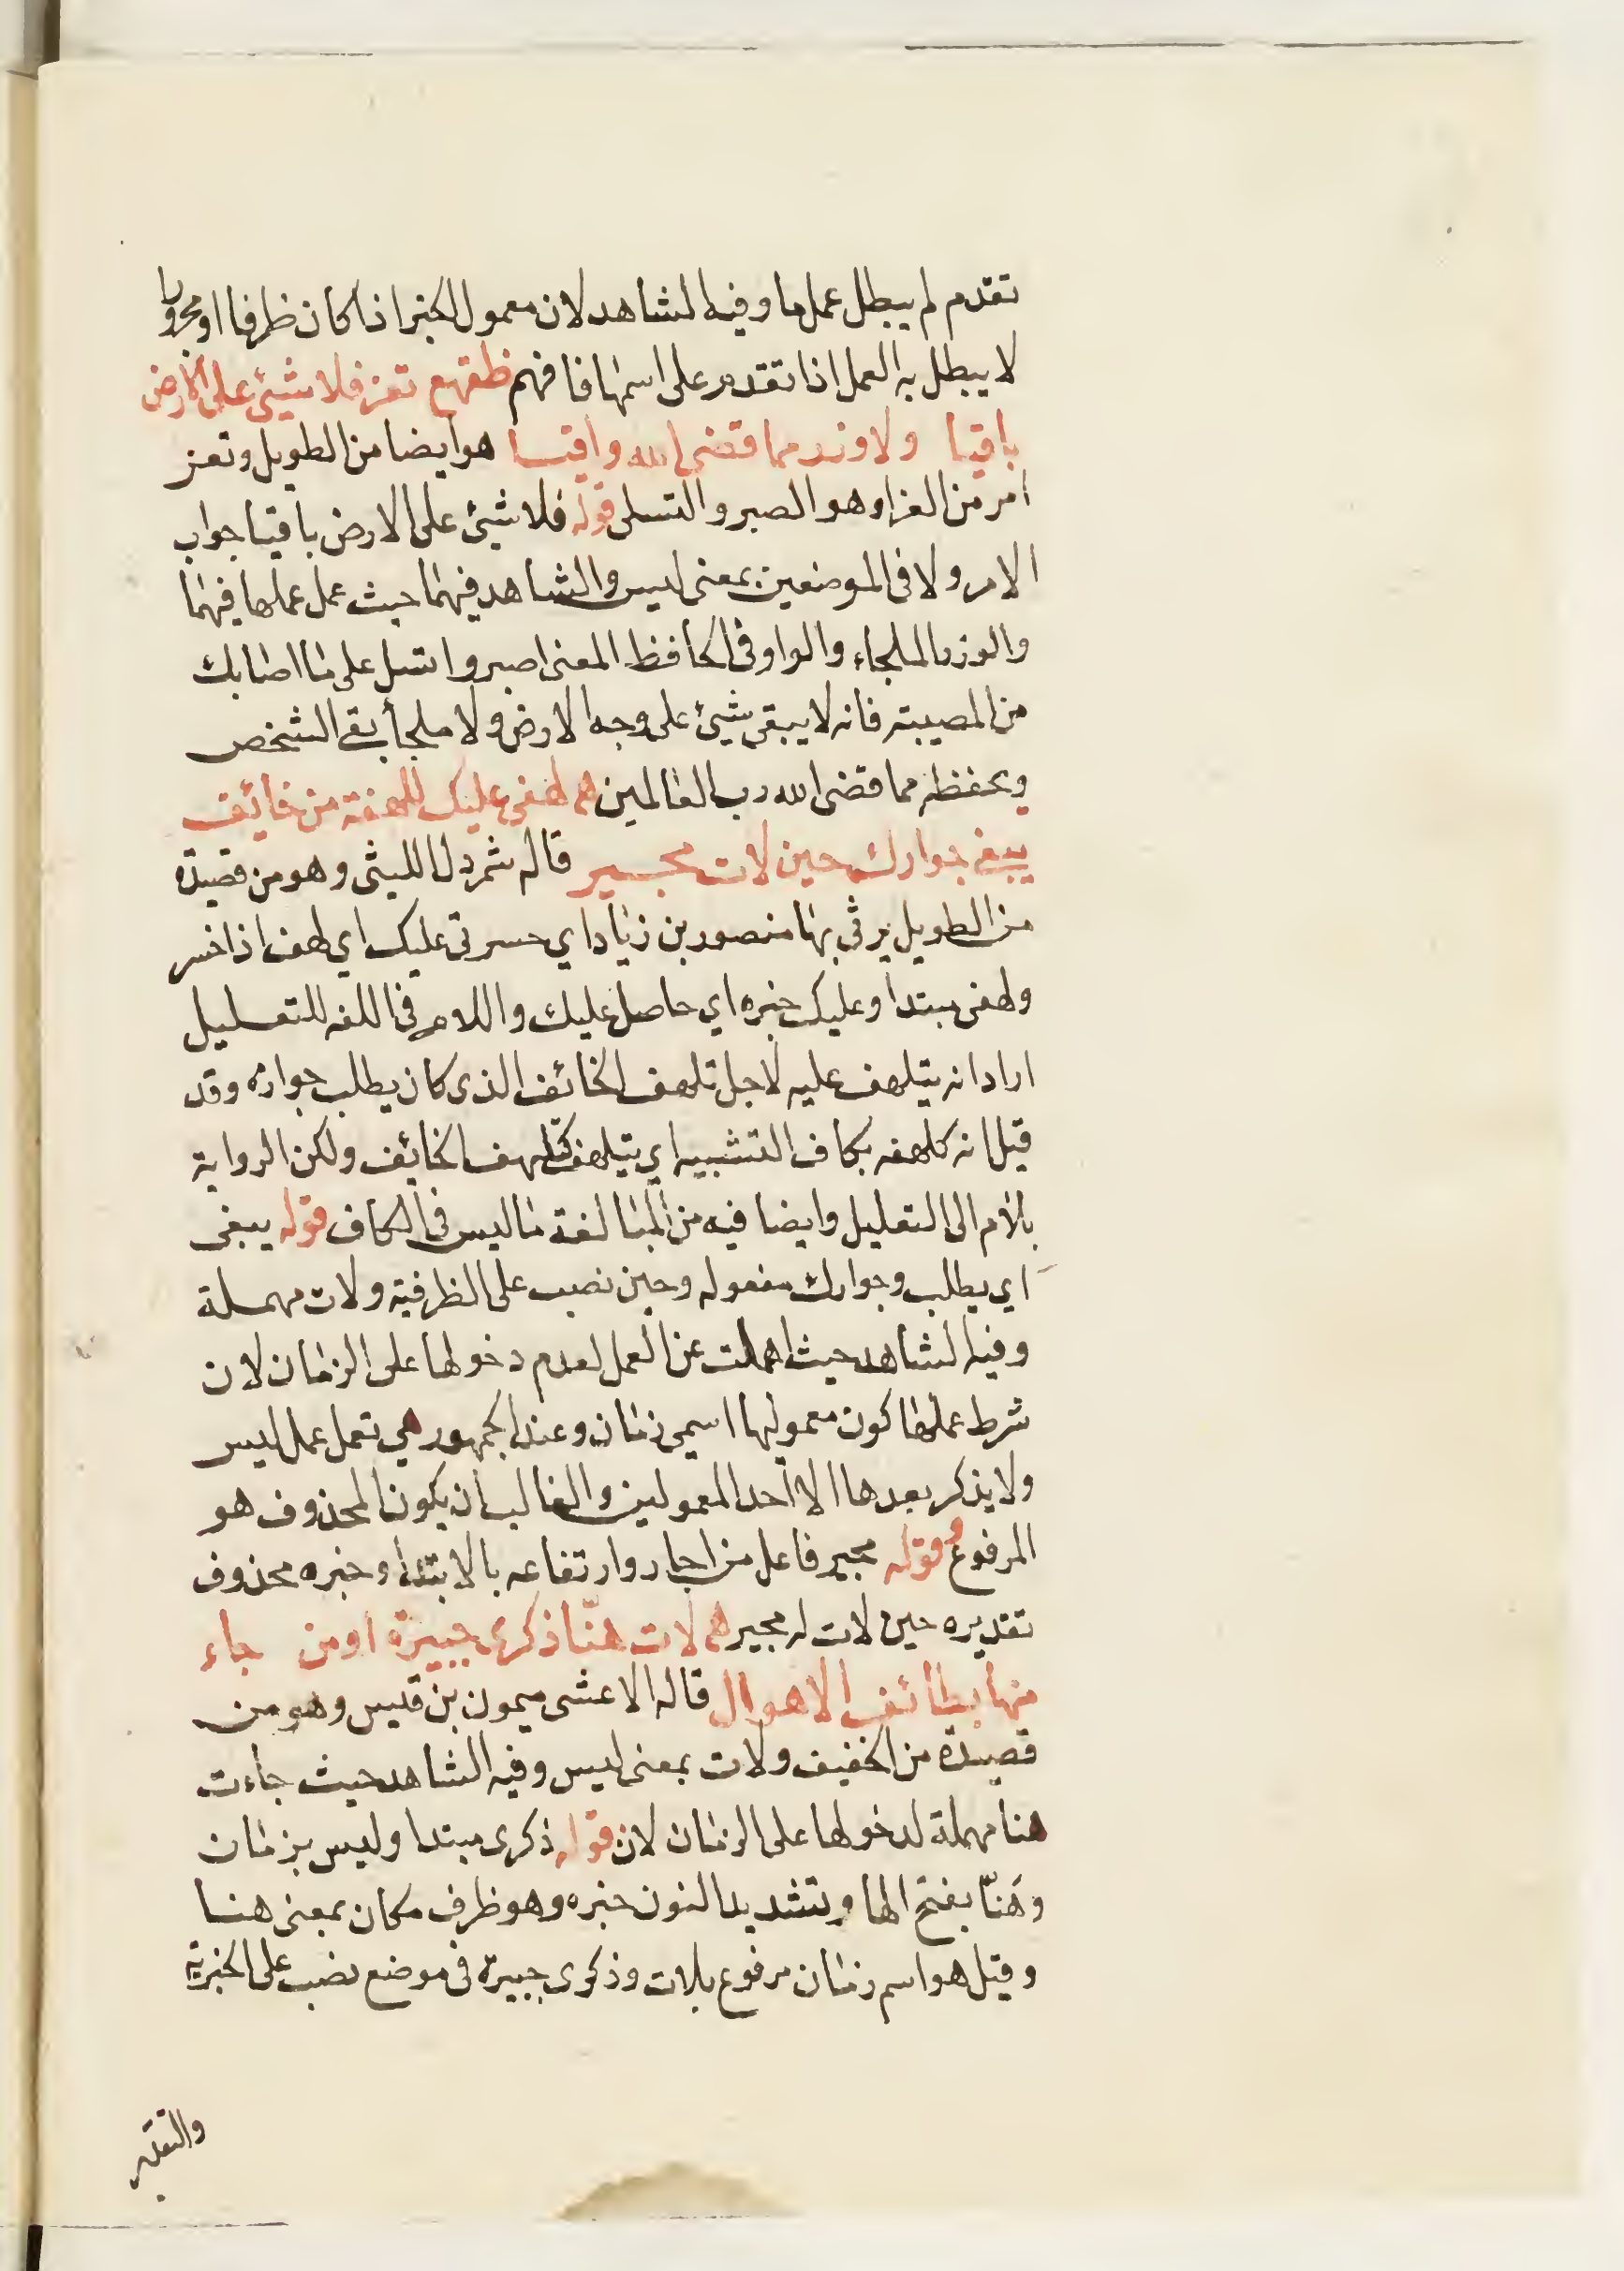 تقدم لم يبطل عملها وفيه الشاهد لان معمول الخبر اذا كان ظرفا او مجرورا
لا يبطل به العمل اذا تقدم على اسمها فافهم ظقهع تعز فلا شيئ على الارض
باقيا ولا وزر مما قضى الله واقيا هو ايضا من الطويل وتعز
امر من العزا وهو الصبر والتسلى قوله فلا شيئ على الارض باقيا جواب
الامر ولا فى الموضعين بمعنى ليس والشاهد فيهما حيث عمل عملها فيهما
والوزر الملجاء والواو فى الحافظ المعنى اصبر واتسل على ما اصابك
من المصيبة فانه لا يبقى شيئ على وجه الارض ولا ملجأ يقى الشخص
ويحفظه مما قضى الله رب العالمين هم لهفى عليك للهفة من خائف
يبغى جوارك حين لات مجير قاله شمردل الليثى وهو من قصيدة
من الطويل يرثى بها منصور بن زياد اي حسرتى عليك اي لهف اذا خسر
ولهفى مبتدا وعليك خبره اي حاصل عليك واللام فى اللغه للتعليل
اراد انه يتلهف عليه لاجل تلهف الخائف الذى كان يطلب جواره وقد
قيل انه كلهفه بكاف التشبيه اي يتلهف كتلهف الخائف ولكن الرواية
بالام الى التعليل وايضا فيه من المبالغة ما ليس فى الكاف قوله يبغى
اي يطلب وجوارك مفعوله وحين نصب على الظرفية ولات مهملة
وفيه الشاهد حيث اهملت عن العمل لعدم دخولها على الزمان لان
شرط عملها كون معموليها اسمي زمان وعند الجمهور هي تعمل عمل ليس
ولا يذكر بعدها الا احد المعمولين والغالب ان يكون المحذوف هو
المرفوع قوله مجير فاعل من اجار وارتفاعه بالابتداء وخبره محذوف
تقديره حين لات له مجير هم لات هنّا ذكرى جبيرة اومن جاء
منها بطائف الاهوال قاله الاعشى ميمون بن قيس وهو من
قصيدة من الخفيف ولات بمعنى ليس وفيه الشاهد حيث جاءت
هنا مهملة لدخولها على الزمان لان قوله ذكرى مبتدا وليس بزمان
وهَنّا بفتح الها وتشديد النون خبره وهو ظرف مكان بمعنى هنا
وقيل هو اسم زمان مرفوع بلات وذكرى جبيرة فى موضع نصب على الخبرية
والتقدير